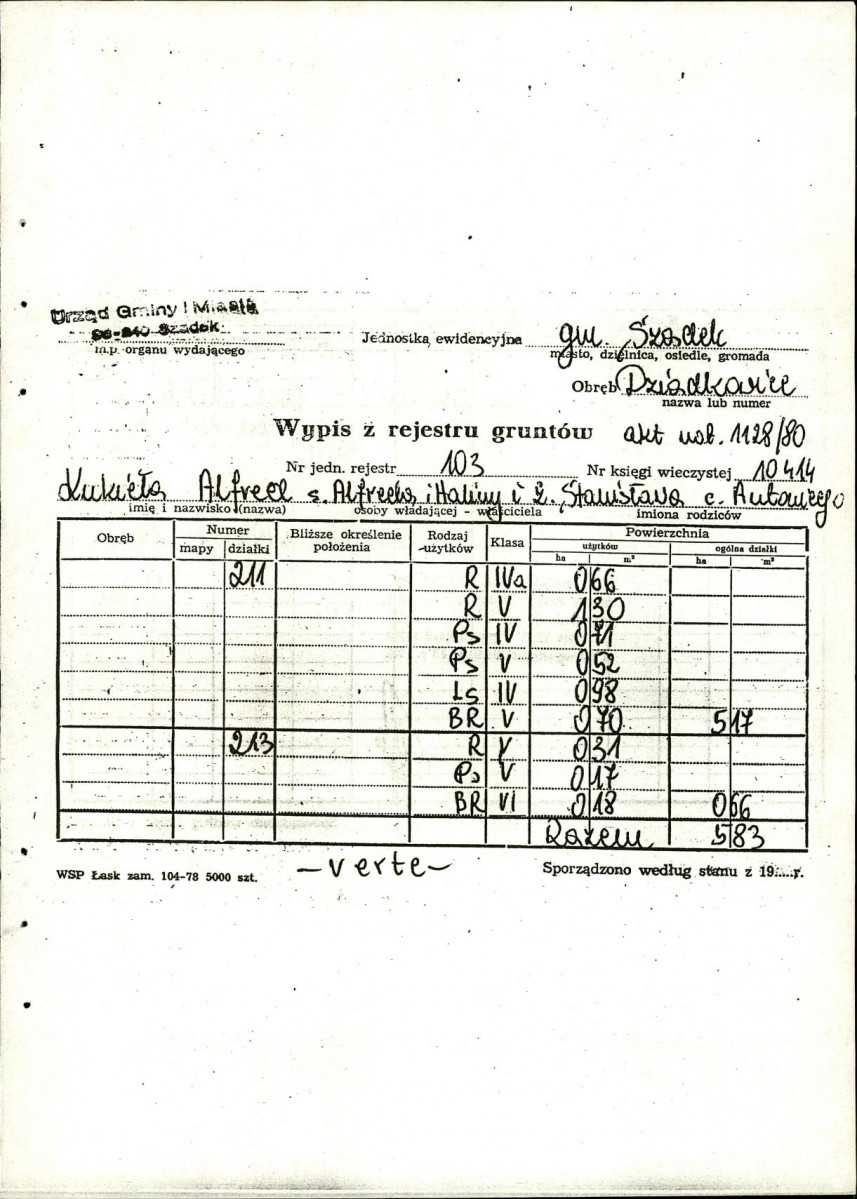 Urząd Gminy i Miasta
98-240 Szadek
m.p. organu wydającego
Jednostka ewidencyjna gm. Szadek
miasto, dzielnica, osiedle, gromada
Obręb Dziadkowice
nazwa lub numer
Wypis z rejestru gruntów akt not. 1128/80
Nr jedn. rejestr 103 Nr księgi wieczystej 10414
Kukieła Alfred s. Alfreda i Haliny i ż. Stanisława c. Antoniego
imię i nazwisko (nazwa) osoby władającej - właściciela imiona rodziców
Obręb Numer Bliższe określenie położenia Rodzaj użytków Klasa Powierzchnia
mapy działki użytków ogólna działki
ha m² ha m²
211 R IVa 0 66
R V 1 30
Ps IV 0 71
Ps V 0 52
Ls IV 0 98
BR V 0 70 5 17
213 R V 0 31
Ps V 0 17
BR VI 0 18 0 66
Razem 5 83
WSP Łask zam. 104-78 5000 szt. – verte – Sporządzono według stanu z 19.....r.